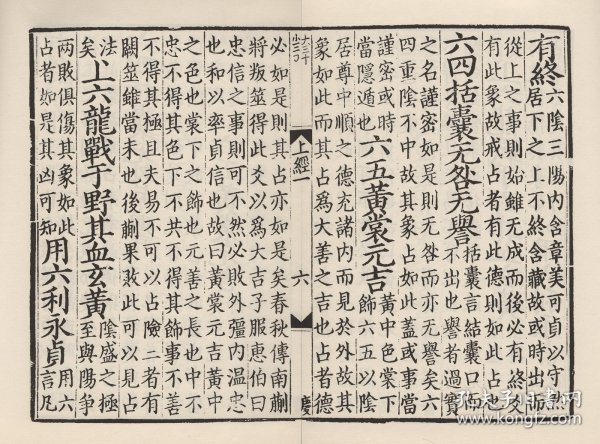 有終
六陰三陽内含章美可貞以守然
居下之上不終含藏故或時出而
從上之事則始雖无成而後必有終爻
有此象故戒占者有此德則如此占也
六四括囊无咎无譽
括囊言結囊口而
不出也譽者過實
之名謹密如是則无咎而亦无譽矣六
四重陰不中故其象占如此蓋或事當
謹密或時
當隱遁也
六五黃裳元吉
黃中色裳下
飾六五以陰
居尊中順之德充諸内而見於外故其
象如此而其占爲大善之吉也占者德
上經一
六
慶
必如是則其占亦如是矣春秋傳南蒯
將叛筮得此爻以爲大吉子服惠伯曰
忠信之事則可不然必敗外彊内溫忠
也和以率貞信也故曰黃裳元吉黃中
之色也裳下之飾也元善之長也中不
忠不得其色下不共不得其飾事不善
不得其極且夫易不可以占險三者有
闕筮雖當未也後蒯果敗此可以見占
法
矣
上六龍戰于野其血玄黃
陰盛之極
至與陽爭
兩敗俱傷其象如此
占者如是其凶可知
用六利永貞
用六
言凡